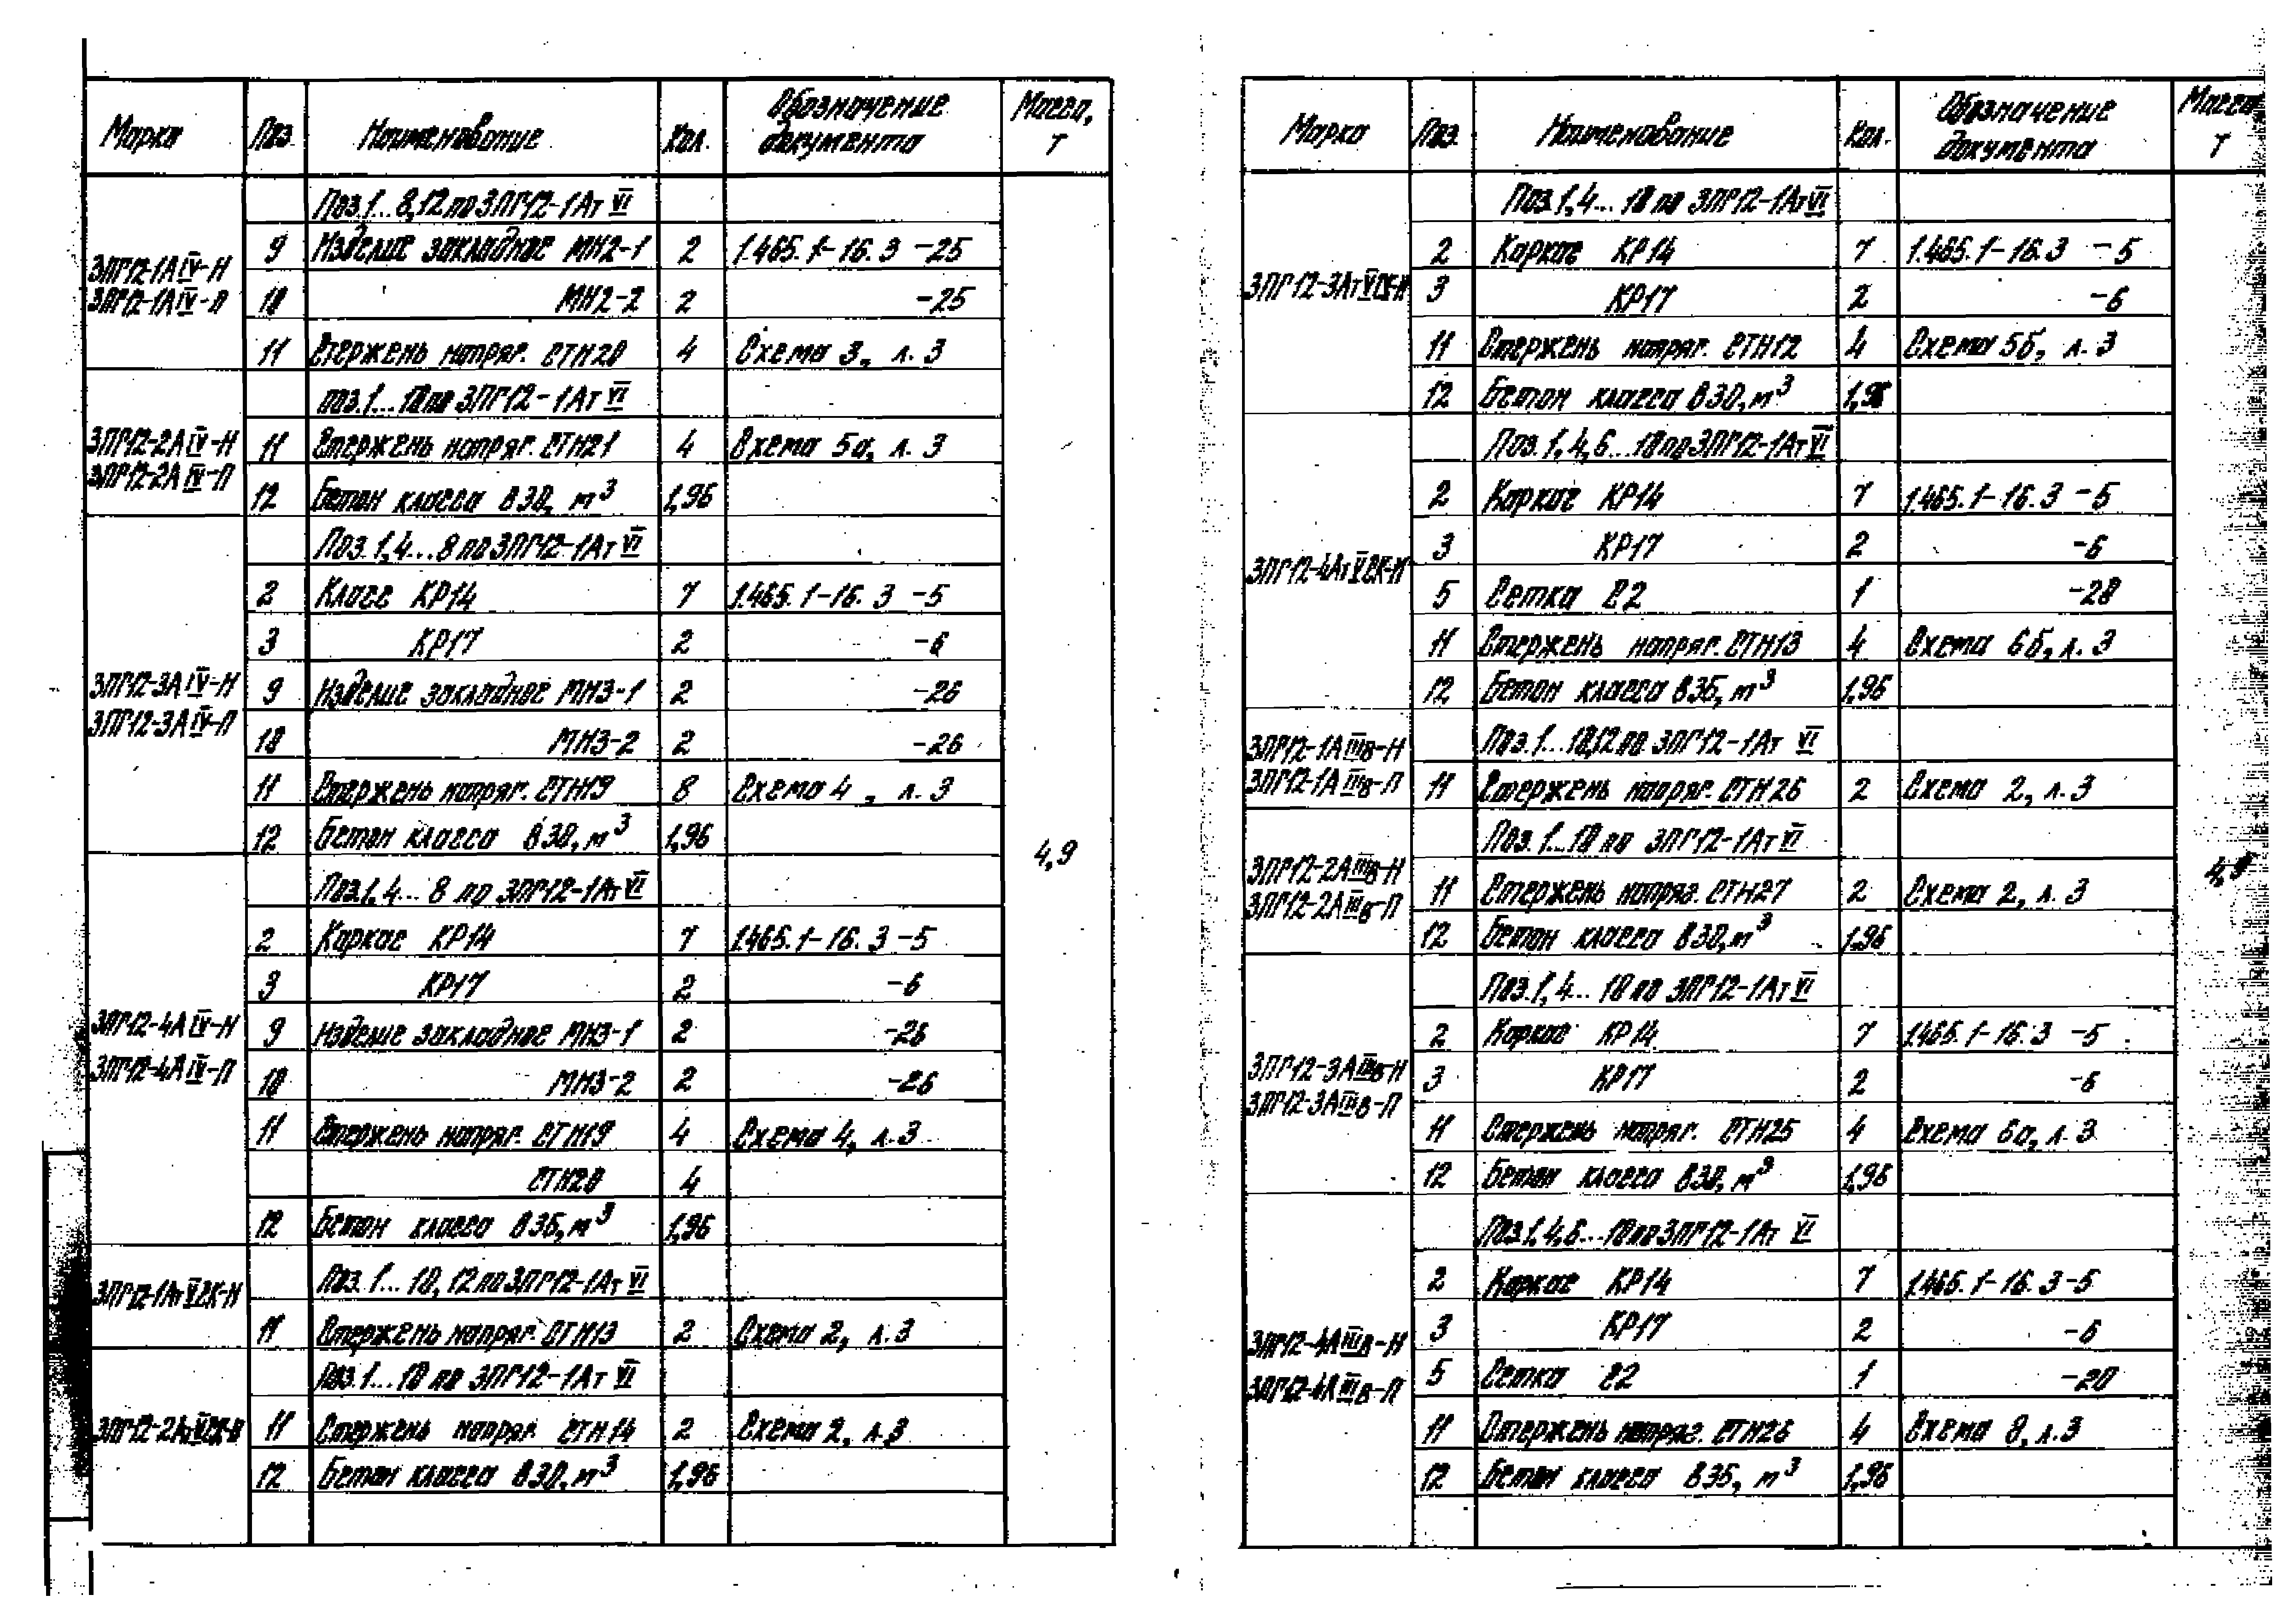 Марка Поз. Наименование Кол. Обозначение документа Масса, т
Поз.1...8,12 по 3ПГ12-1АтVI
3ПГ12-1АIV-Н
3ПГ12-1АIV-П
9 Изделие закладное МН2-1 2 1.465.1-16.3 -25
10 МН2-2 2 -25
11 Стержень напряг. СТН20 4 Схема 3, л. 3
поз.1...10 по 3ПГ12-1АтVI
3ПГ12-2АIV-Н
3ПГ12-2АIV-П
11 Стержень напряг. СТН21 4 Схема 5а, л. 3
12 Бетон класса В30, м3 1,96
Поз.1,4...8 по 3ПГ12-1АтVI
2 Класс КР14 7 1.465.1-16.3 -5
3 КР17 2 -6
3ПГ12-3АIV-Н
3ПГ12-3АIV-П
9 Изделие закладное МН3-1 2 -26
10 МН3-2 2 -26
11 Стержень напряг. СТН19 8 Схема 4, л. 3
12 Бетон класса В30, м3 1,96
4,9
Поз.1,4...8 по 3ПГ12-1АтVI
2 Каркас КР14 7 1.465.1-16.3 -5
3 КР17 2 -6
3ПГ12-4АIV-Н
3ПГ12-4АIV-П
9 Изделие закладное МН3-1 2 -26
10 МН3-2 2 -26
11 Стержень напряг. СТН19 4 Схема 4, л.3
СТН20 4
12 Бетон класса В35, м3 1,96
3ПГ12-1АтVСК-Н
Поз.1...10,12 по 3ПГ12-1АтVI
11 Стержень напряг. СТН13 2 Схема 2, л.3
Поз.1...10 по 3ПГ12-1АтVI
11 Стержень напряг. СТН14 2 Схема 2, л.3
12 Бетон класса В30, м3 1,96
Марка Поз. Наименование Кол. Обозначение документа Масса т
Поз.1,4...10 по 3ПГ12-1АтVI
3ПГ12-3АтVСК-Н
2 Каркас КР14 7 1.465.1-16.3 -5
3 КР17 2 -6
11 Стержень напряг. СТН12 4 Схема 5б, л.3
12 Бетон класса В30, м3 1,96
Поз.1,4,6...10 по 3ПГ12-1АтVI
2 Каркас КР14 7 1.465.1-16.3 -5
3 КР17 2 -6
3ПГ12-4АтVСК-Н
5 Сетка С2 1 -28
11 Стержень напряг. СТН13 4 Схема 6б, л.3
12 Бетон класса В35, м3 1,96
3ПГ12-1АIIIв-Н
3ПГ12-1АIIIв-П
Поз.1...10,12 по 3ПГ12-1АтVI
11 Стержень напряг. СТН26 2 Схема 2, л.3
Поз.1...10 по 3ПГ12-1АтVI
3ПГ12-2АIIIв-Н
3ПГ12-2АIIIв-П
11 Стержень напряг. СТН27 2 Схема 2, л.3
12 Бетон класса В30, м3 1,96
4,9
Поз.1,4...10 по 3ПГ12-1АтVI
2 Каркас КР14 7 1.465.1-16.3 -5
3ПГ12-3АIIIв-Н
3ПГ12-3АIIIв-П
3 КР17 2 -6
11 Стержень напряг. СТН25 4 Схема 6а, л.3
12 Бетон класса В30, м3 1,96
Поз.1,4,6...10 по 3ПГ12-1АтVI
2 Каркас КР14 7 1.465.1-16.3-5
3 КР17 2 -6
3ПГ12-4АIIIв-Н
3ПГ12-4АIIIв-П
5 Сетка С2 1
11 Стержень напряг. СТН26 4 Схема 8, л.3
12 Бетон класса В35, м3 1,96